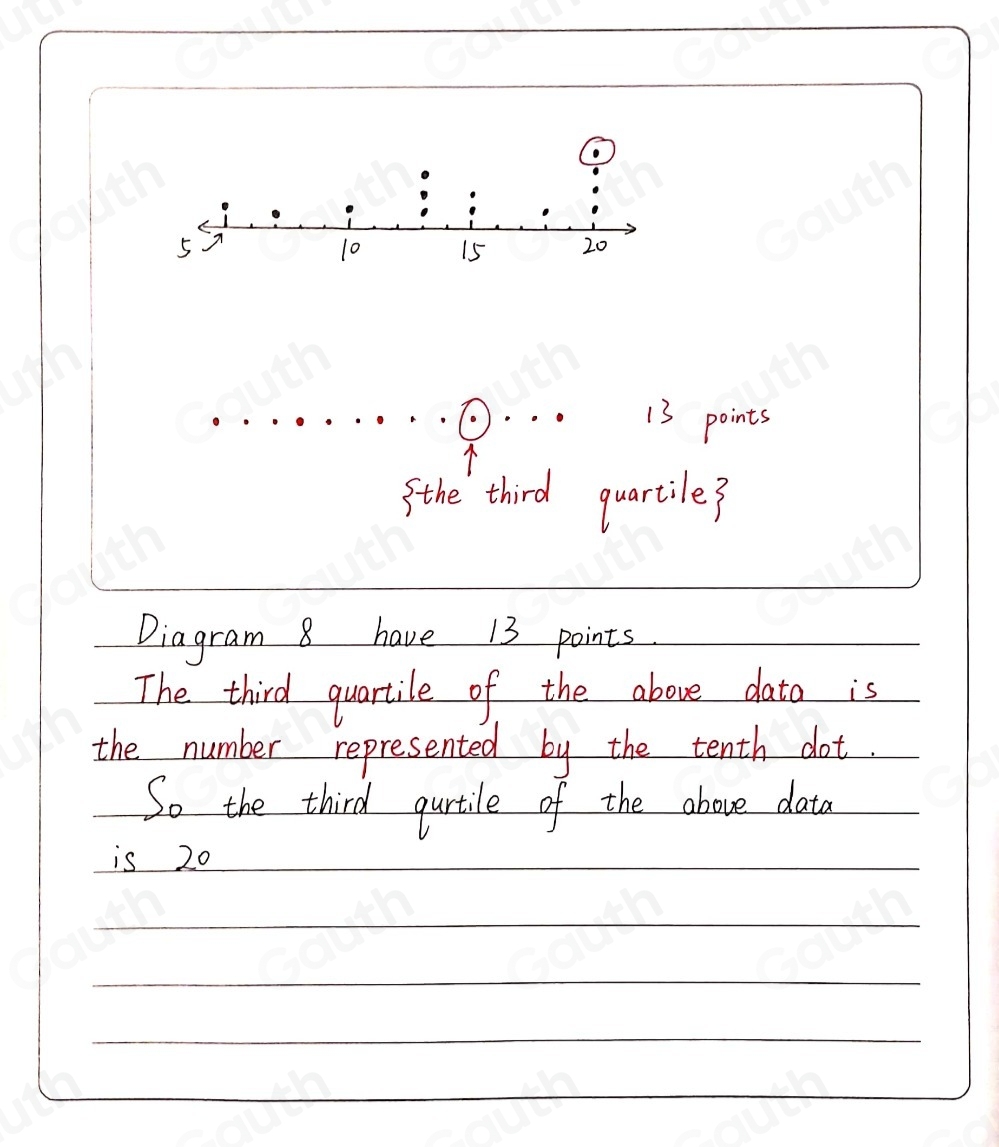 5 10 15 20
13 points
{the third quartile}
Diagram 8 have 13 points.
The third quartile of the above data is
the number represented by the tenth dot.
So the third qurtile of the above data
is 20